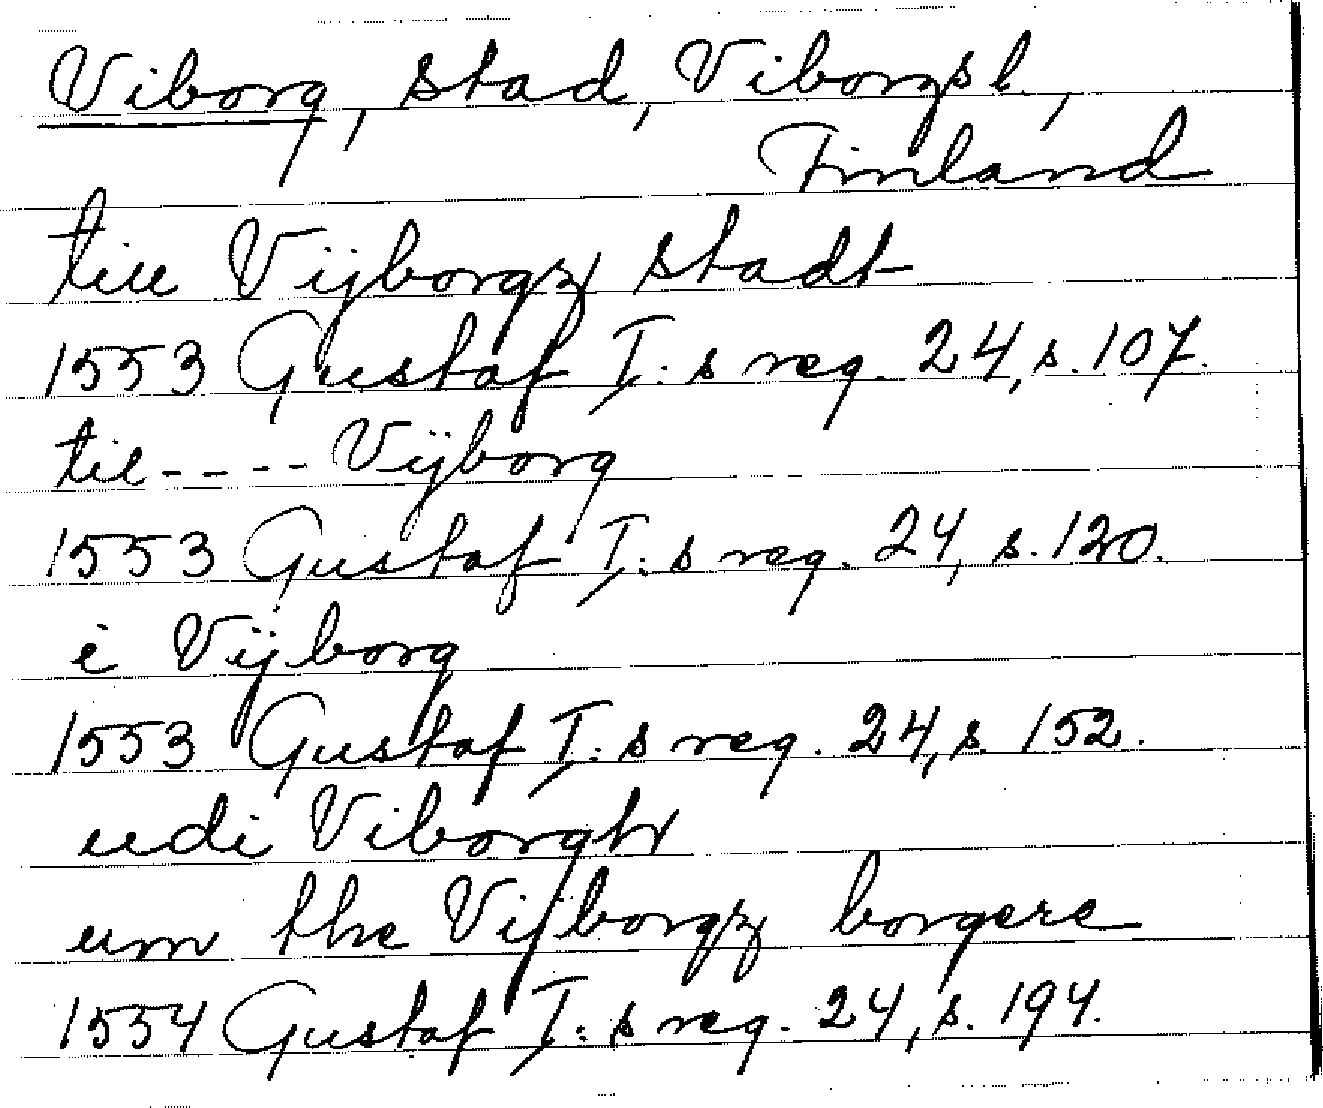 Viborg, stad, Viborgsl.,
Finland
till Vijborgz stadt
1553 Gustaf I:s reg. 24, s. 107.
til---- Vijborg
1553 Gustaf I:s reg. 24, s. 120.
i Vijborg
1553 Gustaf I:s reg. 24, s. 152.
udi Viborgh
um the Vijborgz borgere
1554 Gustaf I:s reg. 24, s. 194.